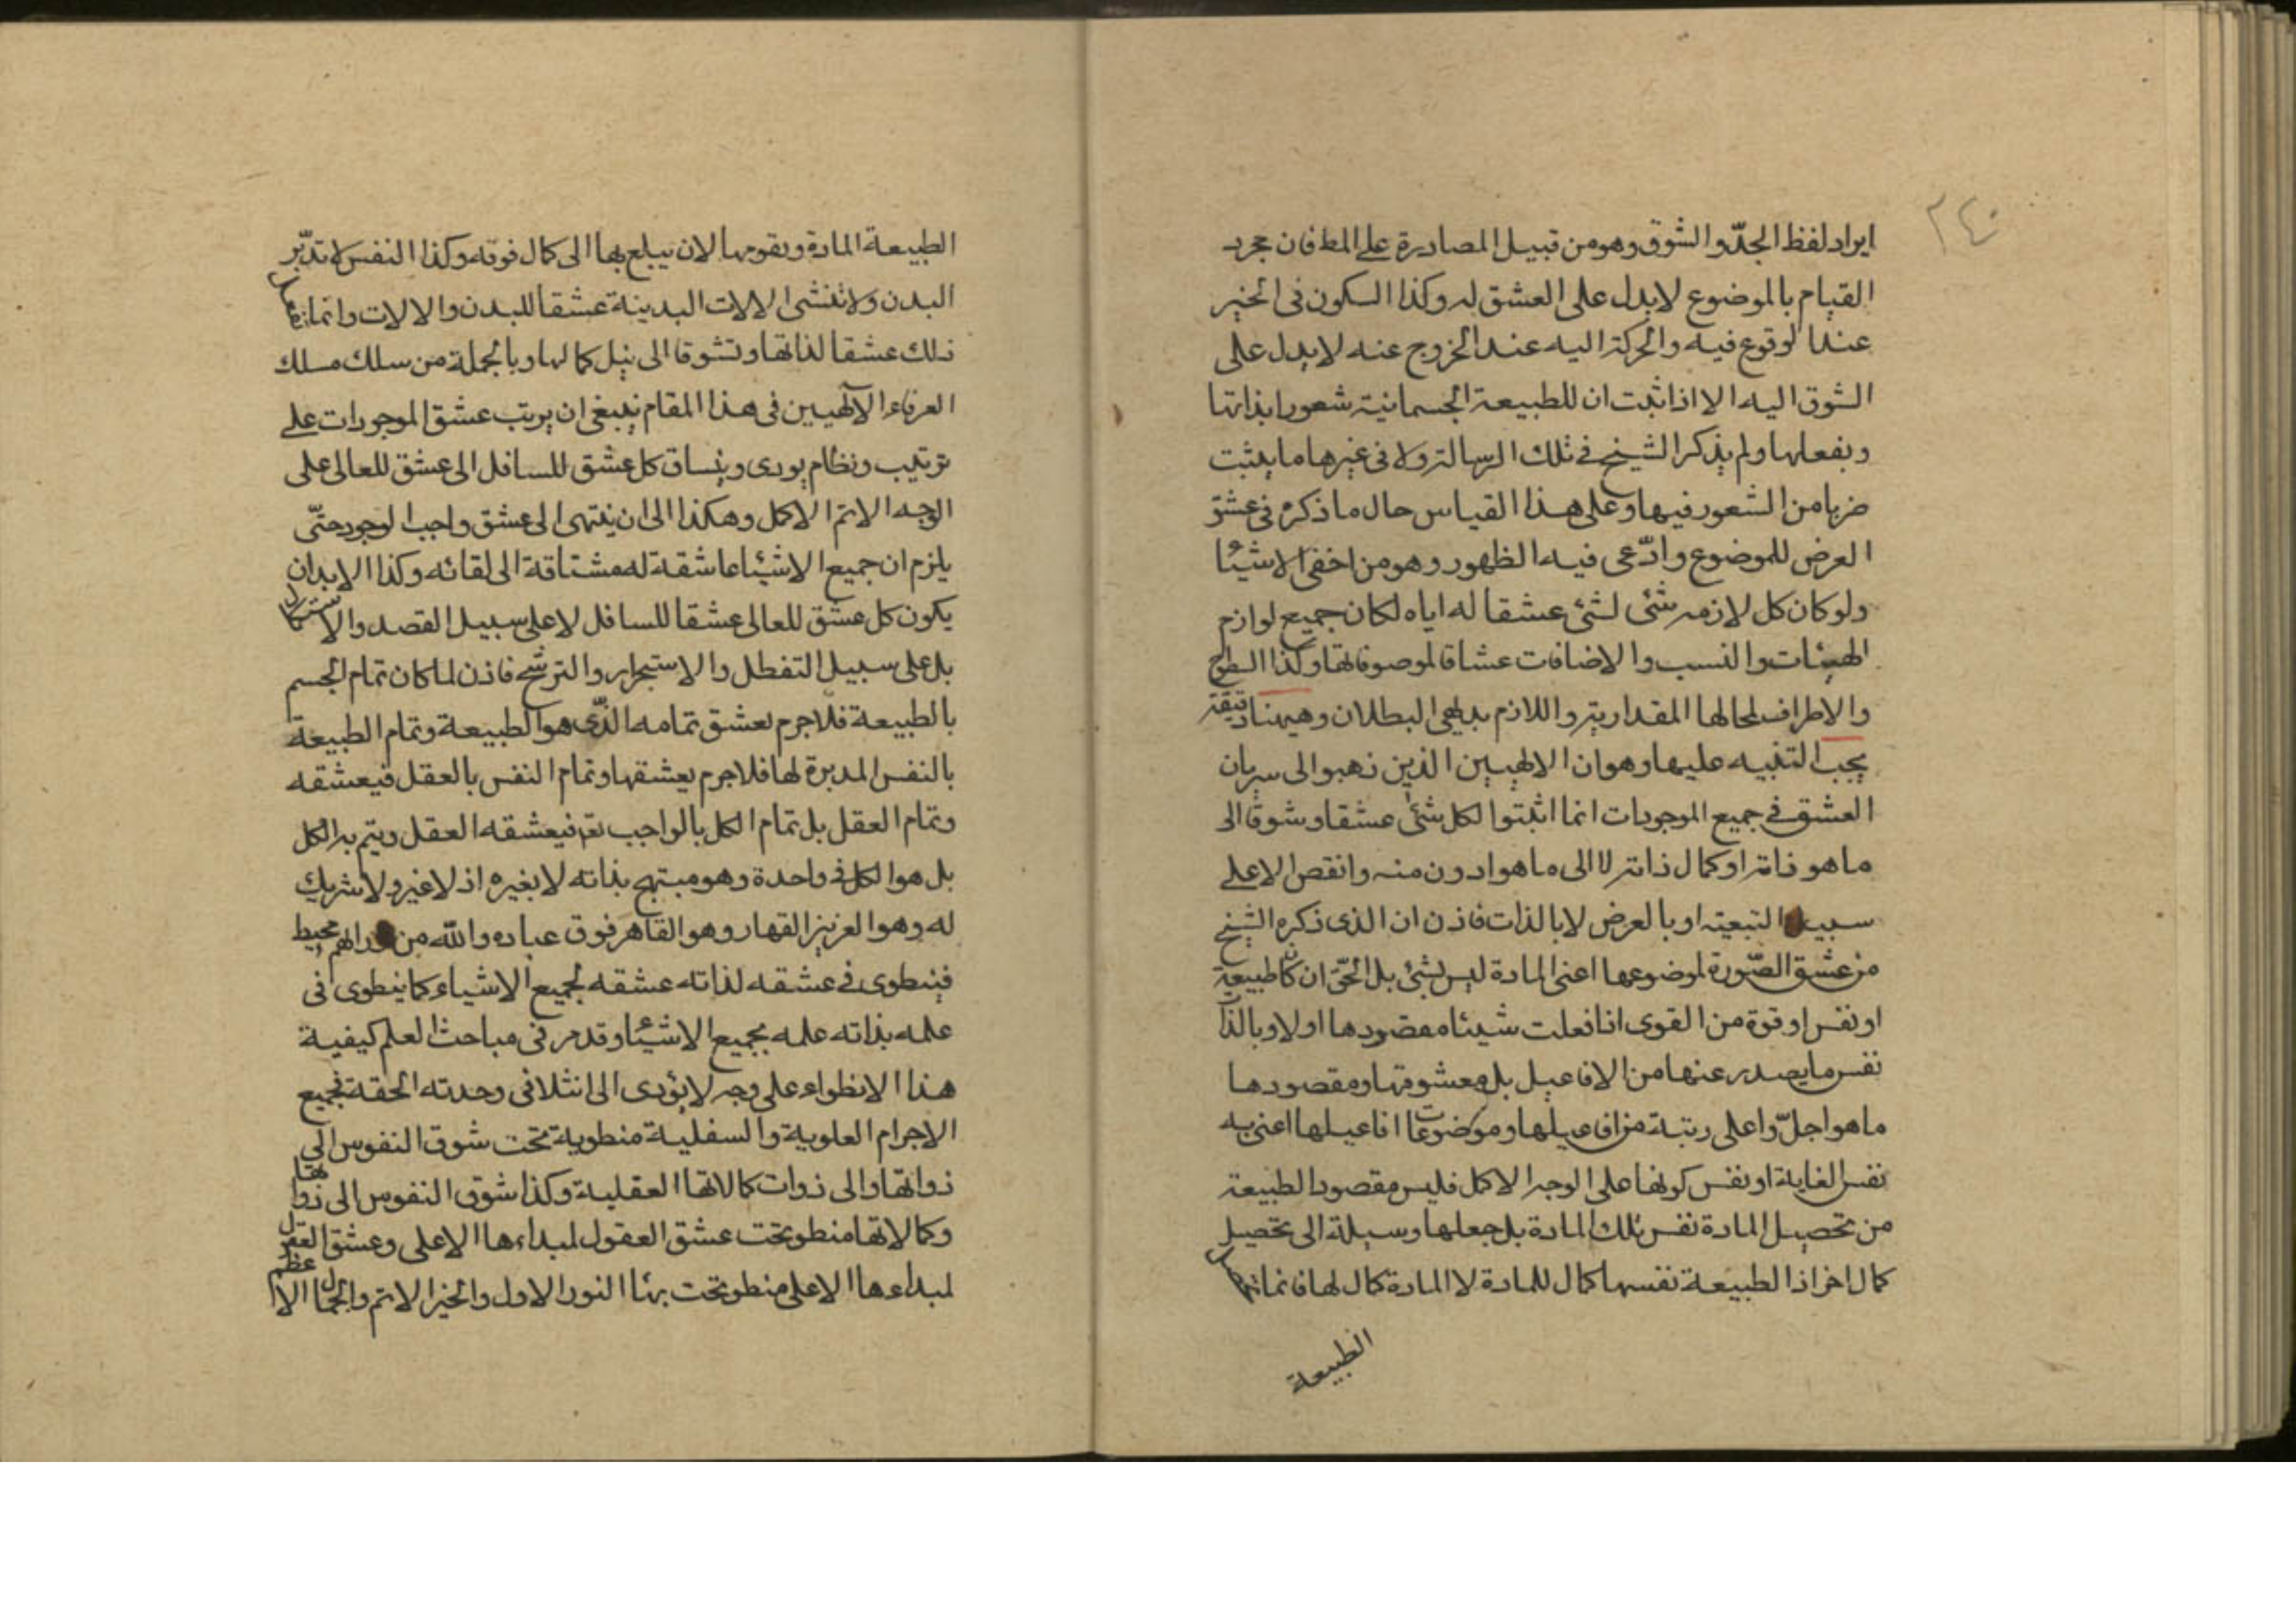 ٢٤٠
ايراد لفظ الجدّ والشوق وهو من قبيل المصادرة على المط فان مجرد
القيام بالموضوع لا يدل على العشق له وكذا السكون فى الخير
عند الوقوع فيه والحركة اليه عند الخروج عنه لا يدل على
الشوق اليه الا اذا ثبت ان للطبيعة الجسمانية شعورا بذاتها
وبفعلها ولم يذكر الشيخ فى تلك الرسالة ولا فى غيرها ما يثبت
ضربا من الشعور فيها وعلى هذا القياس حال ما ذكره فى عشق
العرض للموضوع وادّعى فيه الظهور وهو من اخفى الاشياء
ولو كان كل لازمه شئ لشئ عشقا له اياه لكان جميع لوازم
الهيئات والنسب والاضافات عشاقا لموصوفاتها وكذا السطوح
والاطراف لمحالها المقدارية واللازم بديهى البطلان وهيهنا دقيقة
يجب التنبيه عليها وهو ان الالهيين الذين ذهبوا الى سريان
العشق فى جميع الموجودات انما اثبتوا لكل شئ عشقا وشوقا الى
ما هو ذاته او كمال ذاته لا الى ما هو ادون منه وانقص الا على
سبيل التبعية او بالعرض لا بالذات فاذن ان الذى ذكره الشيخ
من عشق الصّورة لموضوعها اعنى المادة ليس بشئ بل الحقّ ان كل طبيعة
او نفس او قوة من القوى اذا فعلت شيئا مقصودها اولا وبالذات
نفس ما يصدر عنها من الافاعيل بل معشوقها ومقصودها
ما هو اجلّ واعلى رتبة من افاعيلها وموضوعات افاعيلها اعنى به
نفس الغاية او نفس كونها على الوجه الاكمل فليس مقصود الطبيعة
من تحصيل المادة نفس تلك المادة بل جعلها وسيلة الى تحصيل
كمال اخر اذ الطبيعة نفسها كمال للمادة لا المادة كمال لها فانما تحصل
الطبيعة
الطبيعة المادة وتقومها لان يبلغ بها الى كمال فوقه وكذا النفس لا تدبّر
البدن ولا تنشى الالات البدينة عشقا للبدن والالات وانما تفعل
ذلك عشقا لذاتها وتشوقا الى نيل كمالها وبالجملة من سلك مسلك
العرفاء الآلهيين فى هذا المقام ينبغى ان يرتب عشق الموجودات على
ترتيب ونظام يودى وينساق كل عشق للسافل الى عشق للعالى على
الوجه الاتم الاكمل وهكذا الى ان ينتهى الى عشق واجب الوجود حتّى
يلزم ان جميع الاشياء عاشقة له مشتاقة الى لقائه وكذا الابد ان
يكون كل عشق للعالى عشقا للسافل لا على سبيل القصد والاستكمال
بل على سبيل التفطل والاستجرار والترشح فاذن لما كان تمام الجسم
بالطبيعة فلاجرم يعشق تمامه الذّى هو الطبيعة وتمام الطبيعة
بالنفس المدبرة لها فلاجرم يعشقها وتمام النفس بالعقل فيعشقه
وتمام العقل بل تمام الكل بالواجب تعه فيعشقه العقل ويتم به الكل
بل هو الكل فى واحدة وهو مبتهج بذاته لا بغيره اذ لا غير ولا شريك
له وهو العزيز القهار وهو القاهر فوق عباده والله من ورائهم محيط
فينطوى فى عشقه لذاته عشقه لجميع الاشياء كما ينطوى فى
علمه بذاته علمه بجميع الاشياء وقد مر فى مباحث العلم كيفية
هذا الانطواء على وجه لا يؤدى الى انثلام فى وحدته الحقة فجميع
الاجرام العلوية والسفلية منطوية تحت شوق النفوس الى
ذواتها والى ذوات كمالاتها العقلية وكذا شوق النفوس الى ذواتها
وكمالاتها منطو تحت عشق العقول لمبداءها الاعلى وعشق العقل
لمبداءها الاعلى منطو تحت بهاء النور الاول والخير الاتم والجمال الاعظم